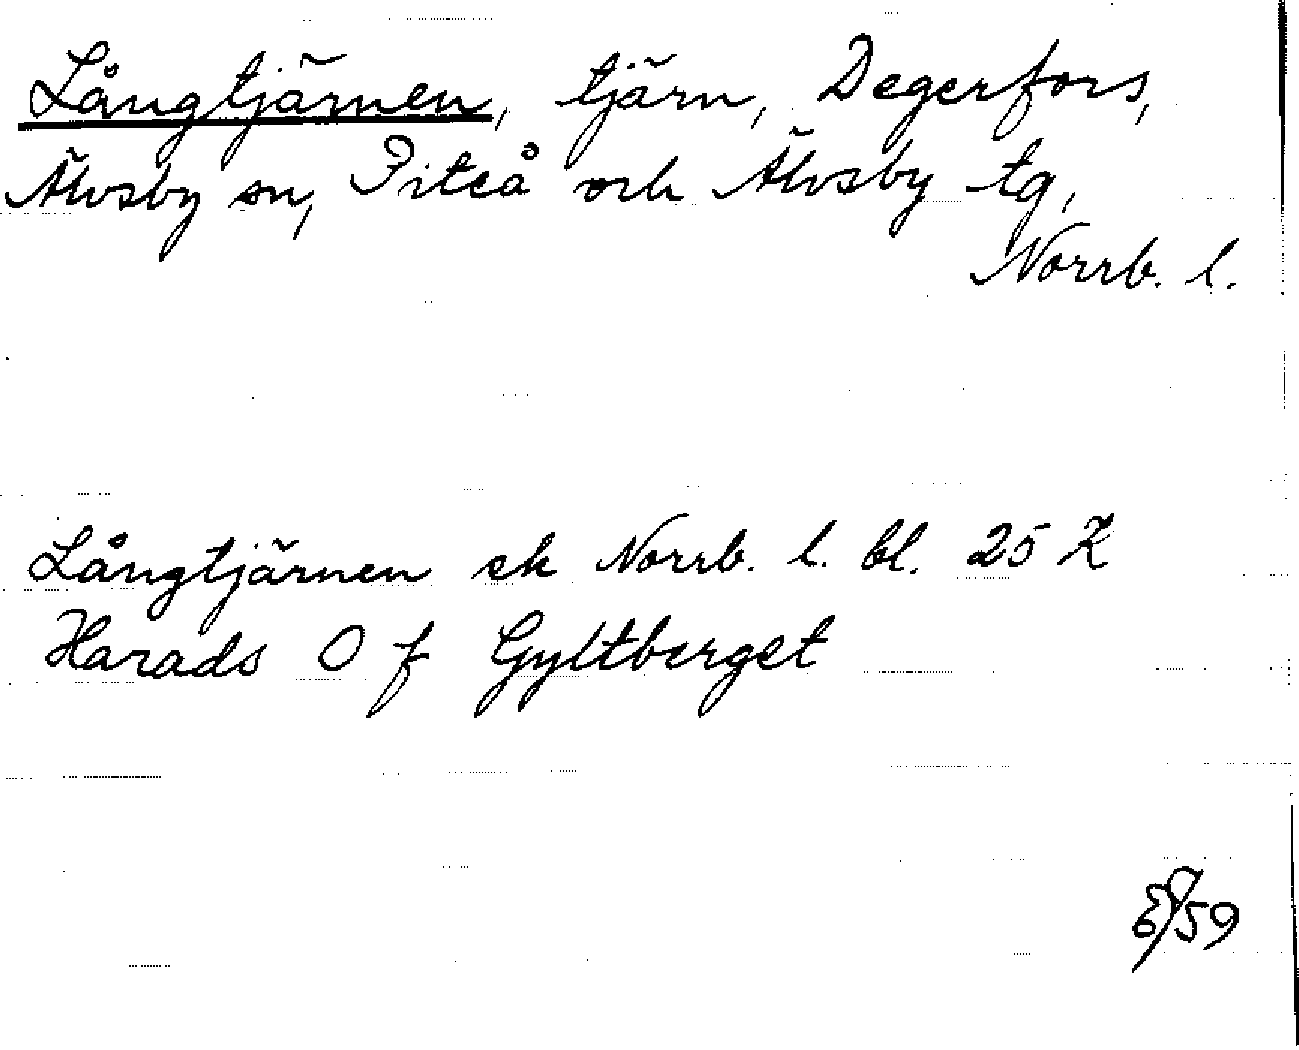 Långtjärnen, tjärn, Degerfors,
Älvsby sn, Piteå och Älvsby tg,
Norrb. l.
Långtjärnen ek Norrb. l. bl. 25 K
Harads O f Gyltberget